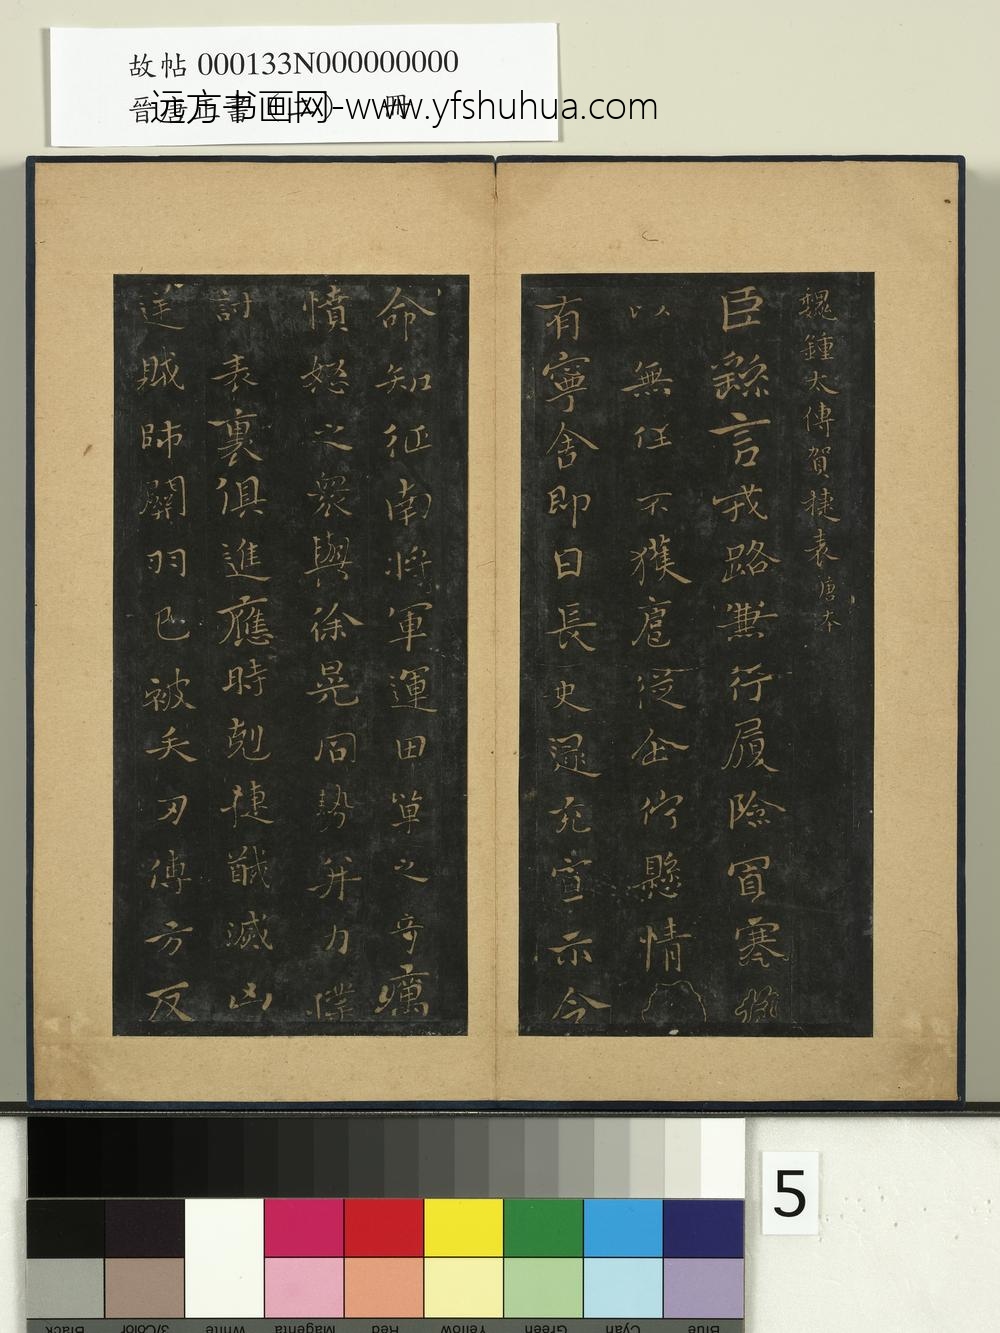 故帖 000133N000000000
晉唐 書 冊
远方书画网-www.yfshuhua.com
魏鍾太傅賀捷表唐本
臣繇言戎路兼行履險冒寒
以無任不獲扈從企佇懸情
有寧舍即日長史逯充宣示令
命知征南將軍運田單之奇厲
憤怒之衆與徐晃同勢并力撲
討表裏俱進應時剋捷馘滅凶
逆賊帥關羽已被矢刃傅方反
5
Black 3/Color White Magenta Red Yellow Green Cyan Blue